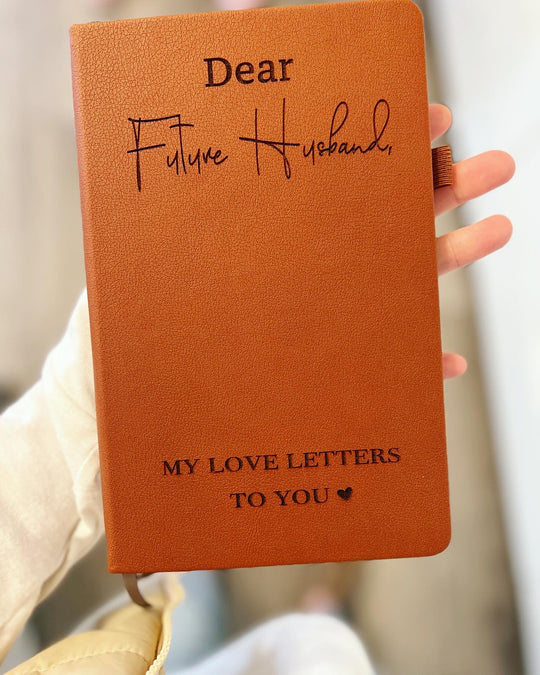 Dear
Future Husband,
MY LOVE LETTERS
TO YOU ♥